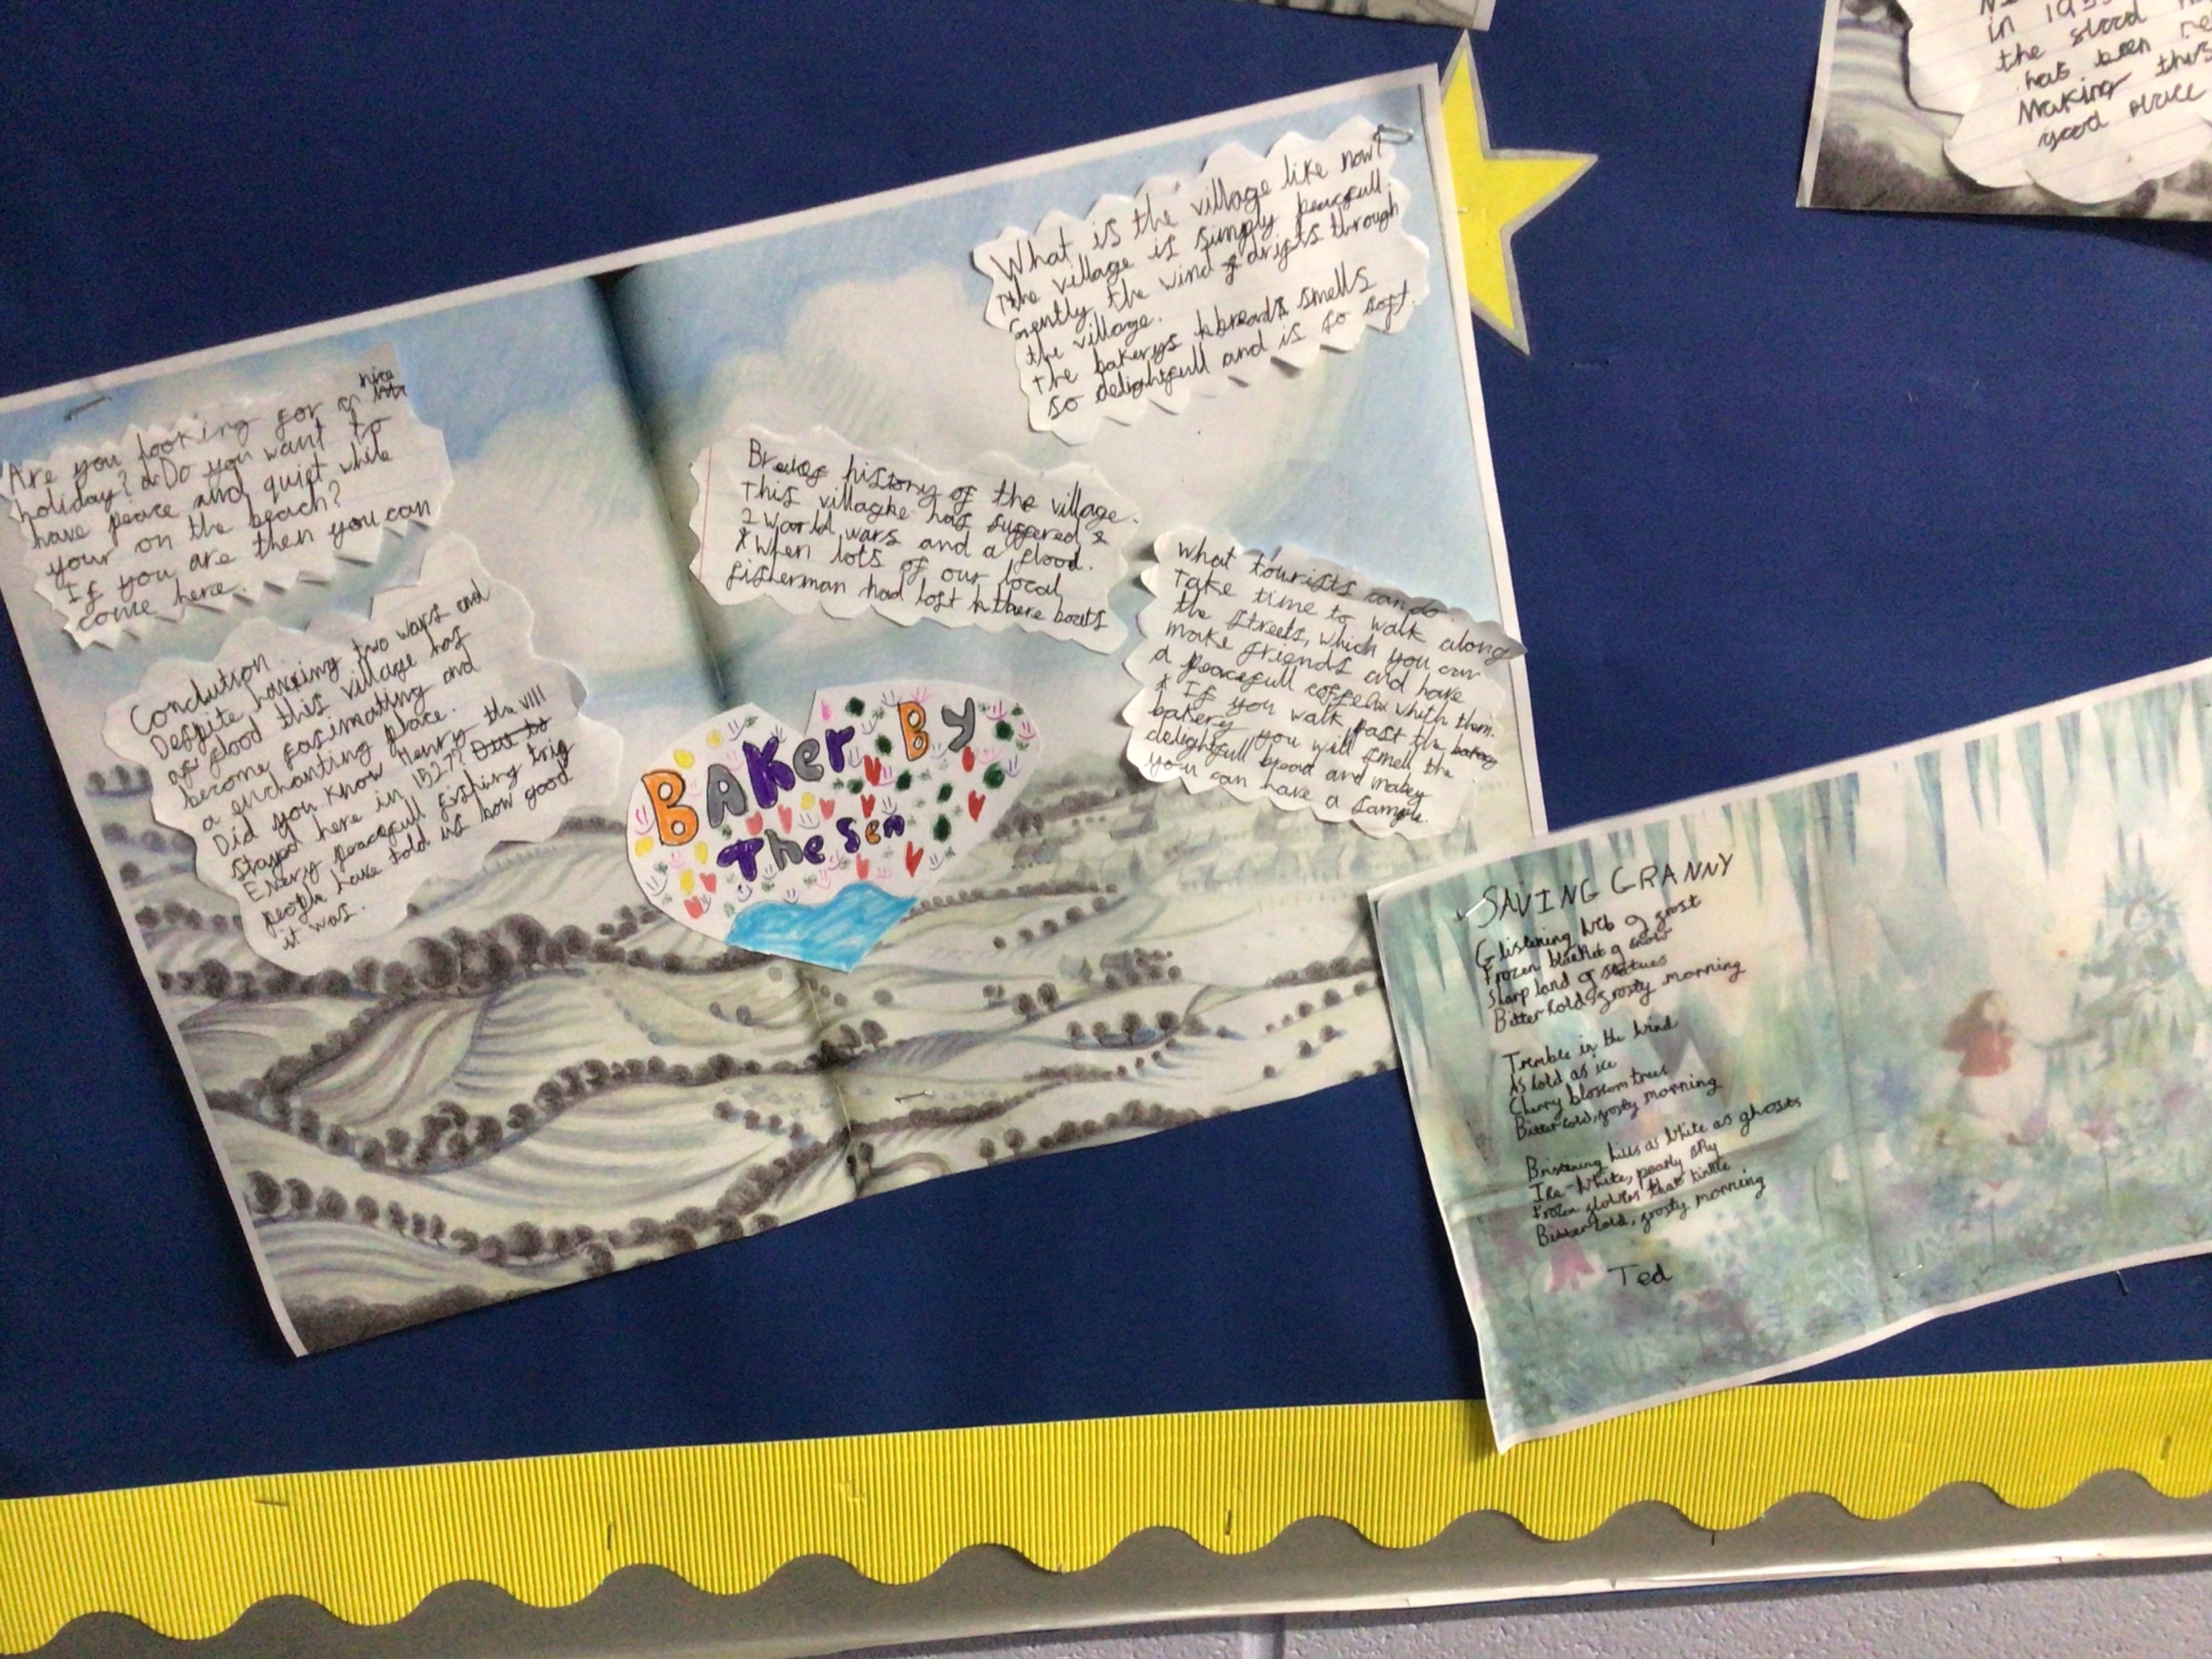 Are you looking for a nice
holiday? Do you want to
have peace and quiet while
your on the beach?
If you are then you can
come here.
Conclution
Despite having two wars and
a flood this village has
become fasinatting and
a enchanting place.
Did you know Henry the VIII
stayd here in 1527? Due to
Every peacefull fishing trip
people have told us how good
it was.
BAKer By
The Sea
history of the village.
This village has suffered
2 world wars and a flood.
When lots of our local
fisherman had lost there boats
What is the village like now?
The village is simply peacefull.
Gently the wind drifts through
the village.
The bakerys breads smells
so delightfull and is so soft.
What tourists can do.
Take time to walk along
the streets, which you can
make friends and have
a peacefull coffee whith them.
If you walk past the bakery
bakery you will smell the
delightfull bread and mabey
you can have a sample.
in 195
the flood
has been re
Making this
good place
SAVING GRANNY
Glistening web of frost
Frozen blanket of snow
Sharp land of statues
Bitter cold, frosty morning
Tremble in the wind
As cold as ice
Cherry blossom trees
Bitter cold, frosty morning
Bristening as white as ghosts
Ice-white, pearly sky
Frozen that tinkle
Bitter cold, frosty morning
Ted